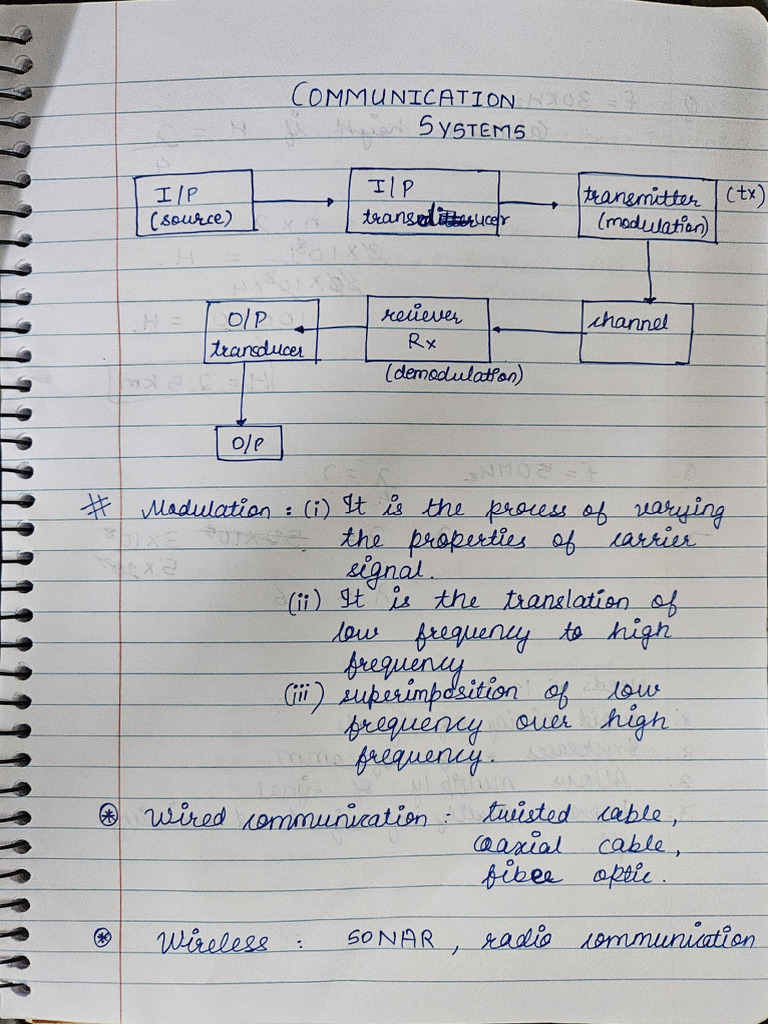 COMMUNICATION
SYSTEMS
I/P
(source)
I/P
transducer
transmitter (tx)
(modulation)
O/P
transducer
reciever
Rx
(demodulation)
channel
O/P
# Modulation : (i) It is the process of varying
the properties of carrier
signal.
(ii) It is the translation of
low frequency to high
frequency
(iii) superimposition of low
frequency over high
frequency.
⊛ Wired communication : twisted cable,
coaxial cable,
fiber optic.
⊛ Wireless : SONAR, radio communication